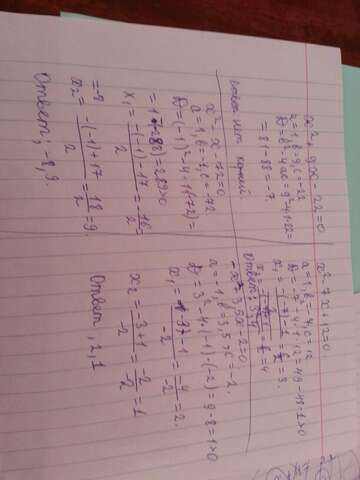 x² + 9x - 22 = 0
a = 1, b = 9, c = -22
D = b² - 4ac = 9² - 4·1·22 =
= 81 - 88 = -7.
ответ нет корней
x² - x - 72 = 0
a = 1, b = -1, c = -72
D = (-1)² - 4·1·(-72) =
= 1 + 288 = 289 > 0
x₁ = -(-1) - 17 / 2 = -16 / 2 =
= -8
x₂ = -(-1) + 17 / 2 = 18 / 2 = 9.
Ответ; -8, 9.
x² - 7x + 12 = 0
a = 1, b = -7, c = 12
D = -7² - 4·1·12 = 49 - 48 = 1 > 0
x₁ = -(-7) - 1 / 2 = 6 / 2 = 3.
= 4
Ответ: 3, 4
-x² + 3,5x - 2 = 0
D = 3² - 4·(-1)·(-2) = 9 - 8 = 1 > 0
x₁ = -3 - 1 / -2 = -4 / -2 = 2.
x₂ = -3 + 1 / -2 = -2 / -2 = 1
Ответ, 2, 1